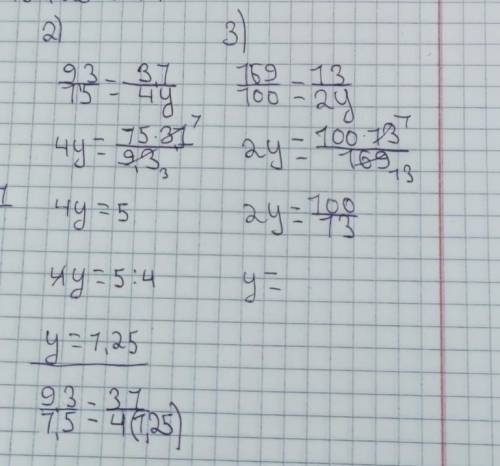 2)
93/15 = 31/4y
4y = 15·31 1/9,3 3
4y = 5
4y = 5:4
y = 1,25
93/1,5 = 31/4(1,25)
3)
169/100 = 13/2y
2y = 100·13 1/169 13
2y = 100/13
y =